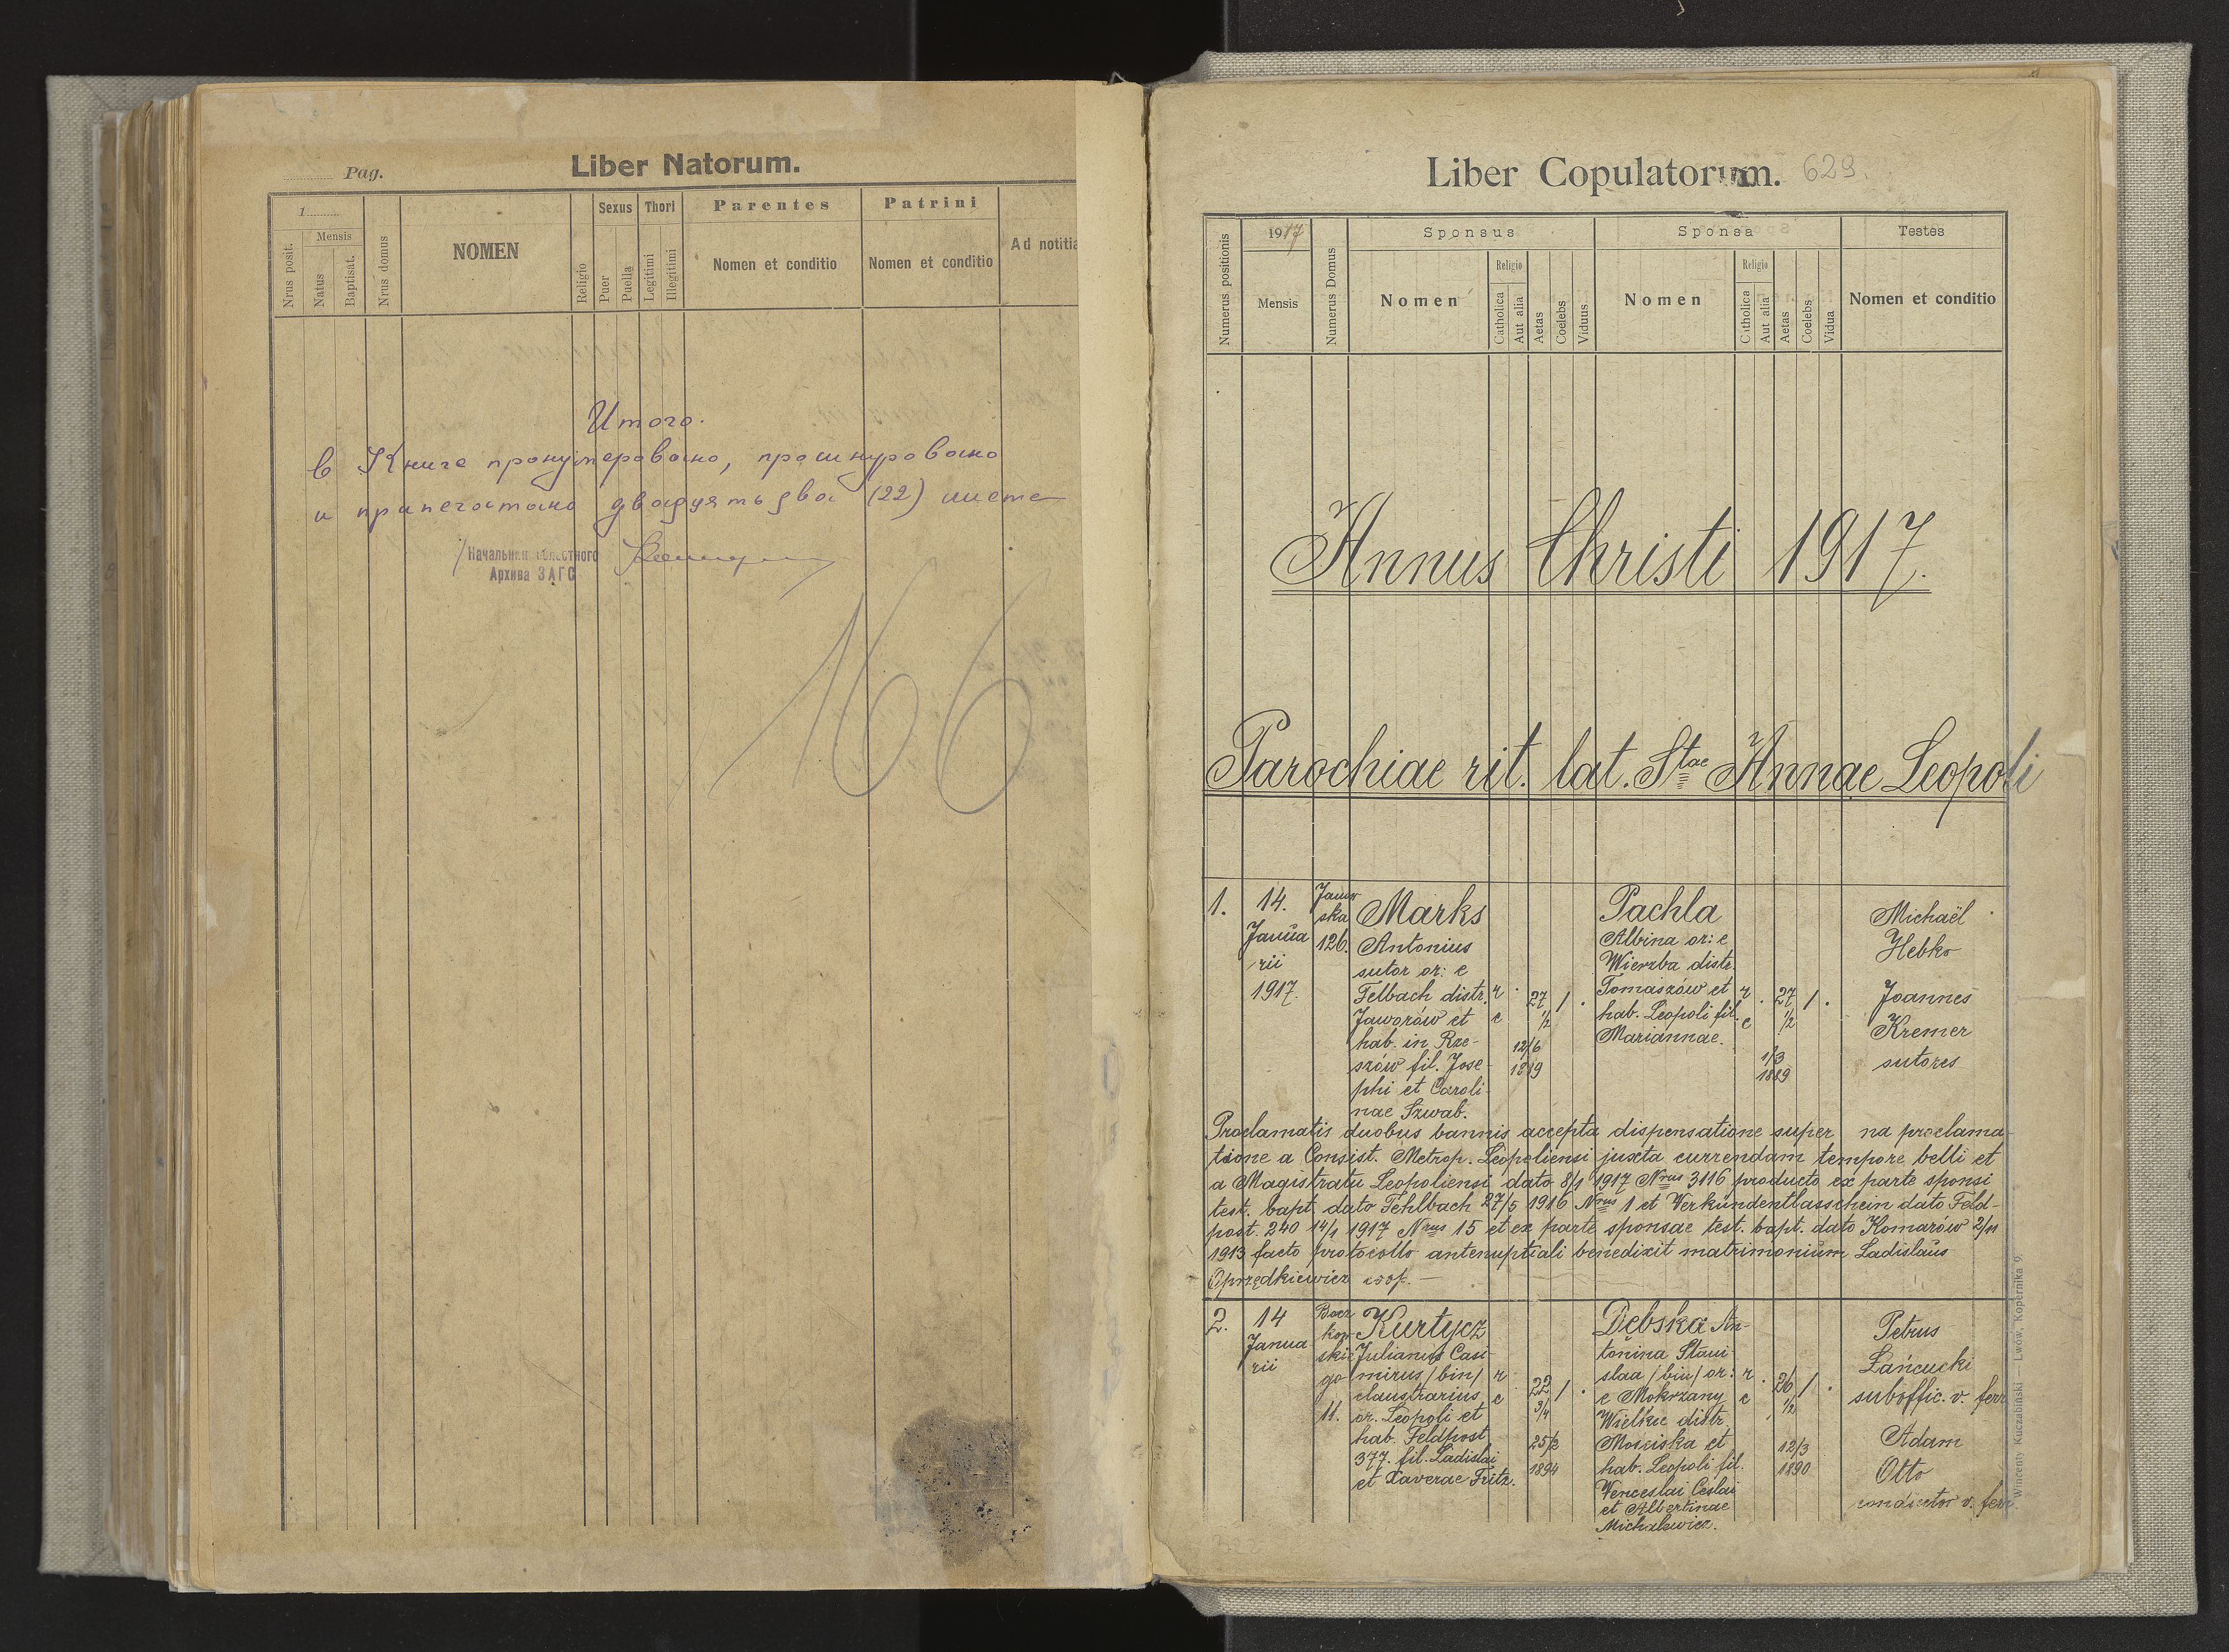 Pag.
Liber Natorum.
1
Mensis
Nrus posit.
Natus
Baptisat.
Nrus domus
NOMEN
Religio
Sexus
Puer
Puella
Thori
Legitimi
Illegitimi
Parentes
Nomen et conditio
Patrini
Nomen et conditio
Ad notitia
Итого.
в Книге пронумеровано, прошнуровано
и припечатано двадцять два (22) листа
Начальник областного
Архива ЗАГС
166
Liber Copulatorum. 629.
Numerus positionis
1917
Mensis
Numerus Domus
Sponsus
Nomen
Religio
Catholica
Aut alia
Aetas
Coelebs
Viduus
Sponsa
Nomen
Religio
Catholica
Aut alia
Aetas
Coelebs
Vidua
Testes
Nomen et conditio
Annus Christi 1917.
Parochiae rit. lat. Stae Annae Leopoli
1.
14.
Janua
rii
1917.
Janow
ska
126.
Marks
Antonius
sutor or: e
Felbach distr.
Jaworów et
hab. in Rze-
szów fil. Jose-
phi et Caroli-
nae Szwab.
r
c
27
1/2
12/6
1889
1
Pachla
Albina or: e
Wierzba distr.
Tomaszów et
hab. Leopoli fil.
Mariannae.
r
c
27
1/2
1/3
1889
1
Michaël
Hebko
Joannes
Kremer
sutores
Proclamatis duobus bannis accepta dispensatione super na proclama-
tione a Consist. Metrop. Leopoliensi juxta currendam tempore belli et
a Magistratu Leopoliensi dato 8/1 1917 Nrus 3116 producto ex parte sponsi
test. bapt. dato Fehlbach 27/5 1916 Nrus 1 et Verkündentlasschein dato Feld-
post. 240 14/1 1917 Nrus 15 et ex parte sponsae test. bapt. dato Komarów 2/11
1913 facto protocollo antenuptiali benedixit matrimonium Ladislaus
Oprzędkiewicz coop.
2.
14
Janua
rii
go
11.
Kurtycz
Julianus Casi-
mirus /bin/
claustrarius
or. Leopoli et
hab. Feldpost
377. fil. Ladislai
et Xaverae Fritz.
r
c
22
3/4
25/2
1894
1
Debska An-
tonina Stani-
slaa /bin/ or:
e Mokrzany
Wielkie distr.
Mościska et
hab. Leopoli fil.
Venceslai Ceslai
et Albertinae
Michalewicz.
r
c
26
1/2
12/3
1890
1
Petrus
Łańcucki
suboffic. v. ferr
Adam
Otto
conductor v. ferr.
Wincenty Kuczabiński – Lwów, Kopernika 9.